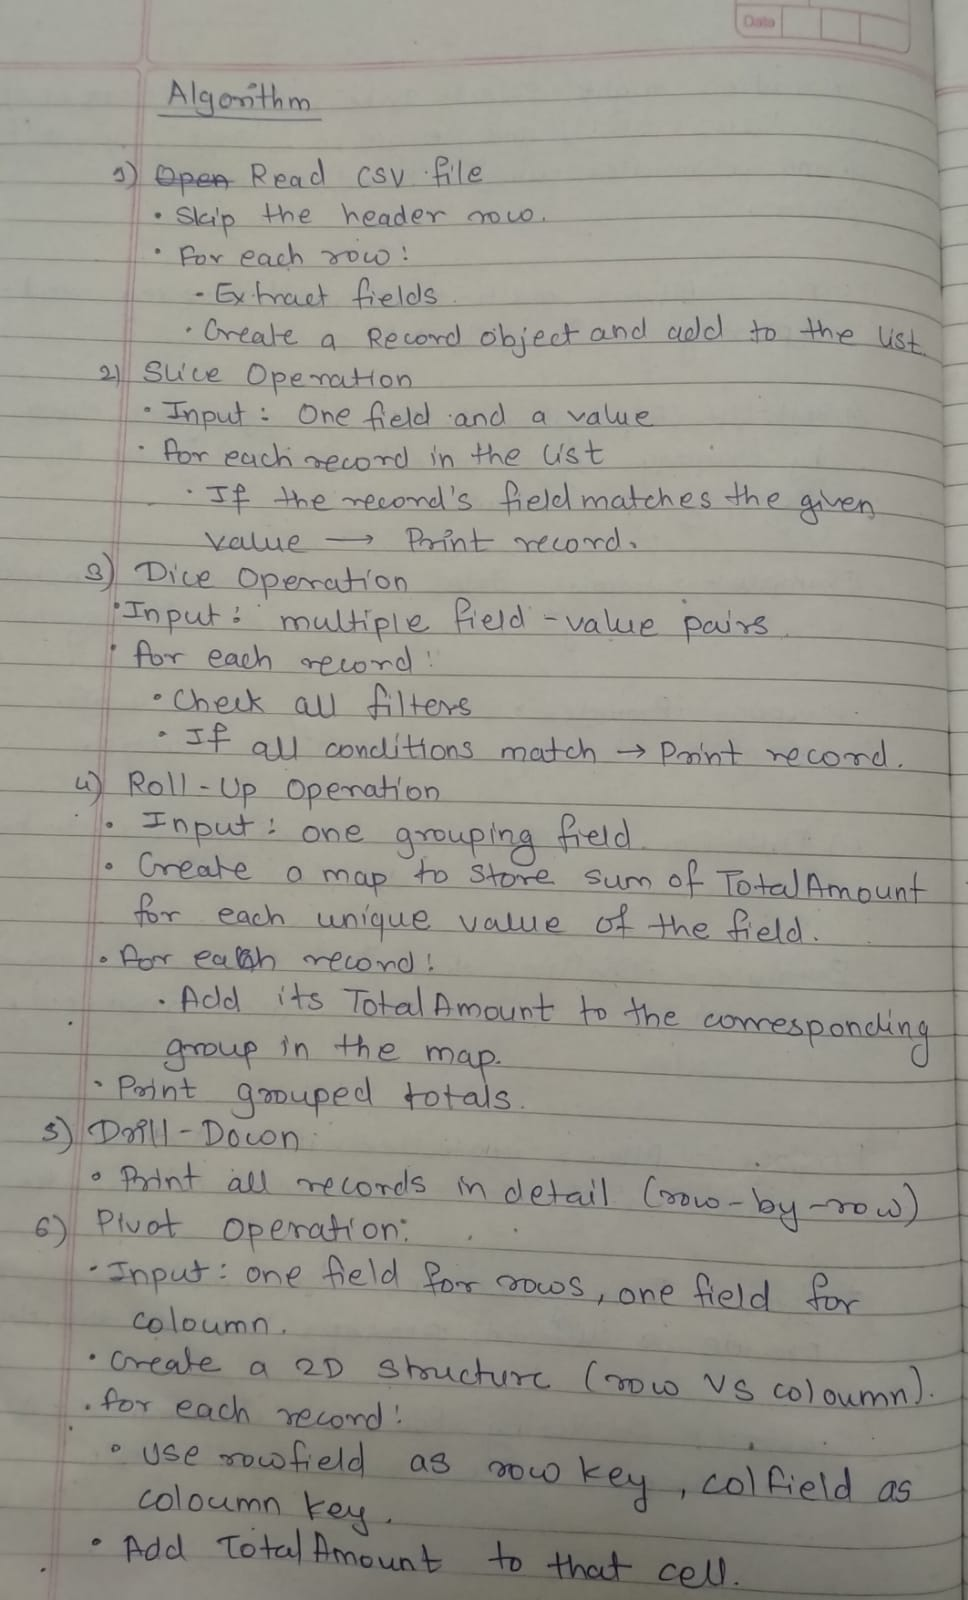 Date
Algorithm
1) Open Read CSV file
• Skip the header row.
• For each row:
- Extract fields.
• Create a Record object and add to the list.
2) Slice Operation
• Input: One field and a value
• for each record in the list
• If the record's field matches the given
value → Print record.
3) Dice Operation
• Input: multiple field-value pairs.
• for each record:
• Check all filters
• If all conditions match → Print record.
4) Roll-Up Operation
• Input: one grouping field.
• Create a map to store sum of TotalAmount
for each unique value of the field.
• for each record:
• Add its TotalAmount to the corresponding
group in the map.
• Print grouped totals.
5) Drill-Down
• Print all records in detail (row-by-row)
6) Pivot Operation:
• Input: one field for rows, one field for
coloumn.
• Create a 2D structure (row VS coloumn).
• for each record:
• Use rowfield as row key, colfield as
coloumn key.
• Add TotalAmount to that cell.